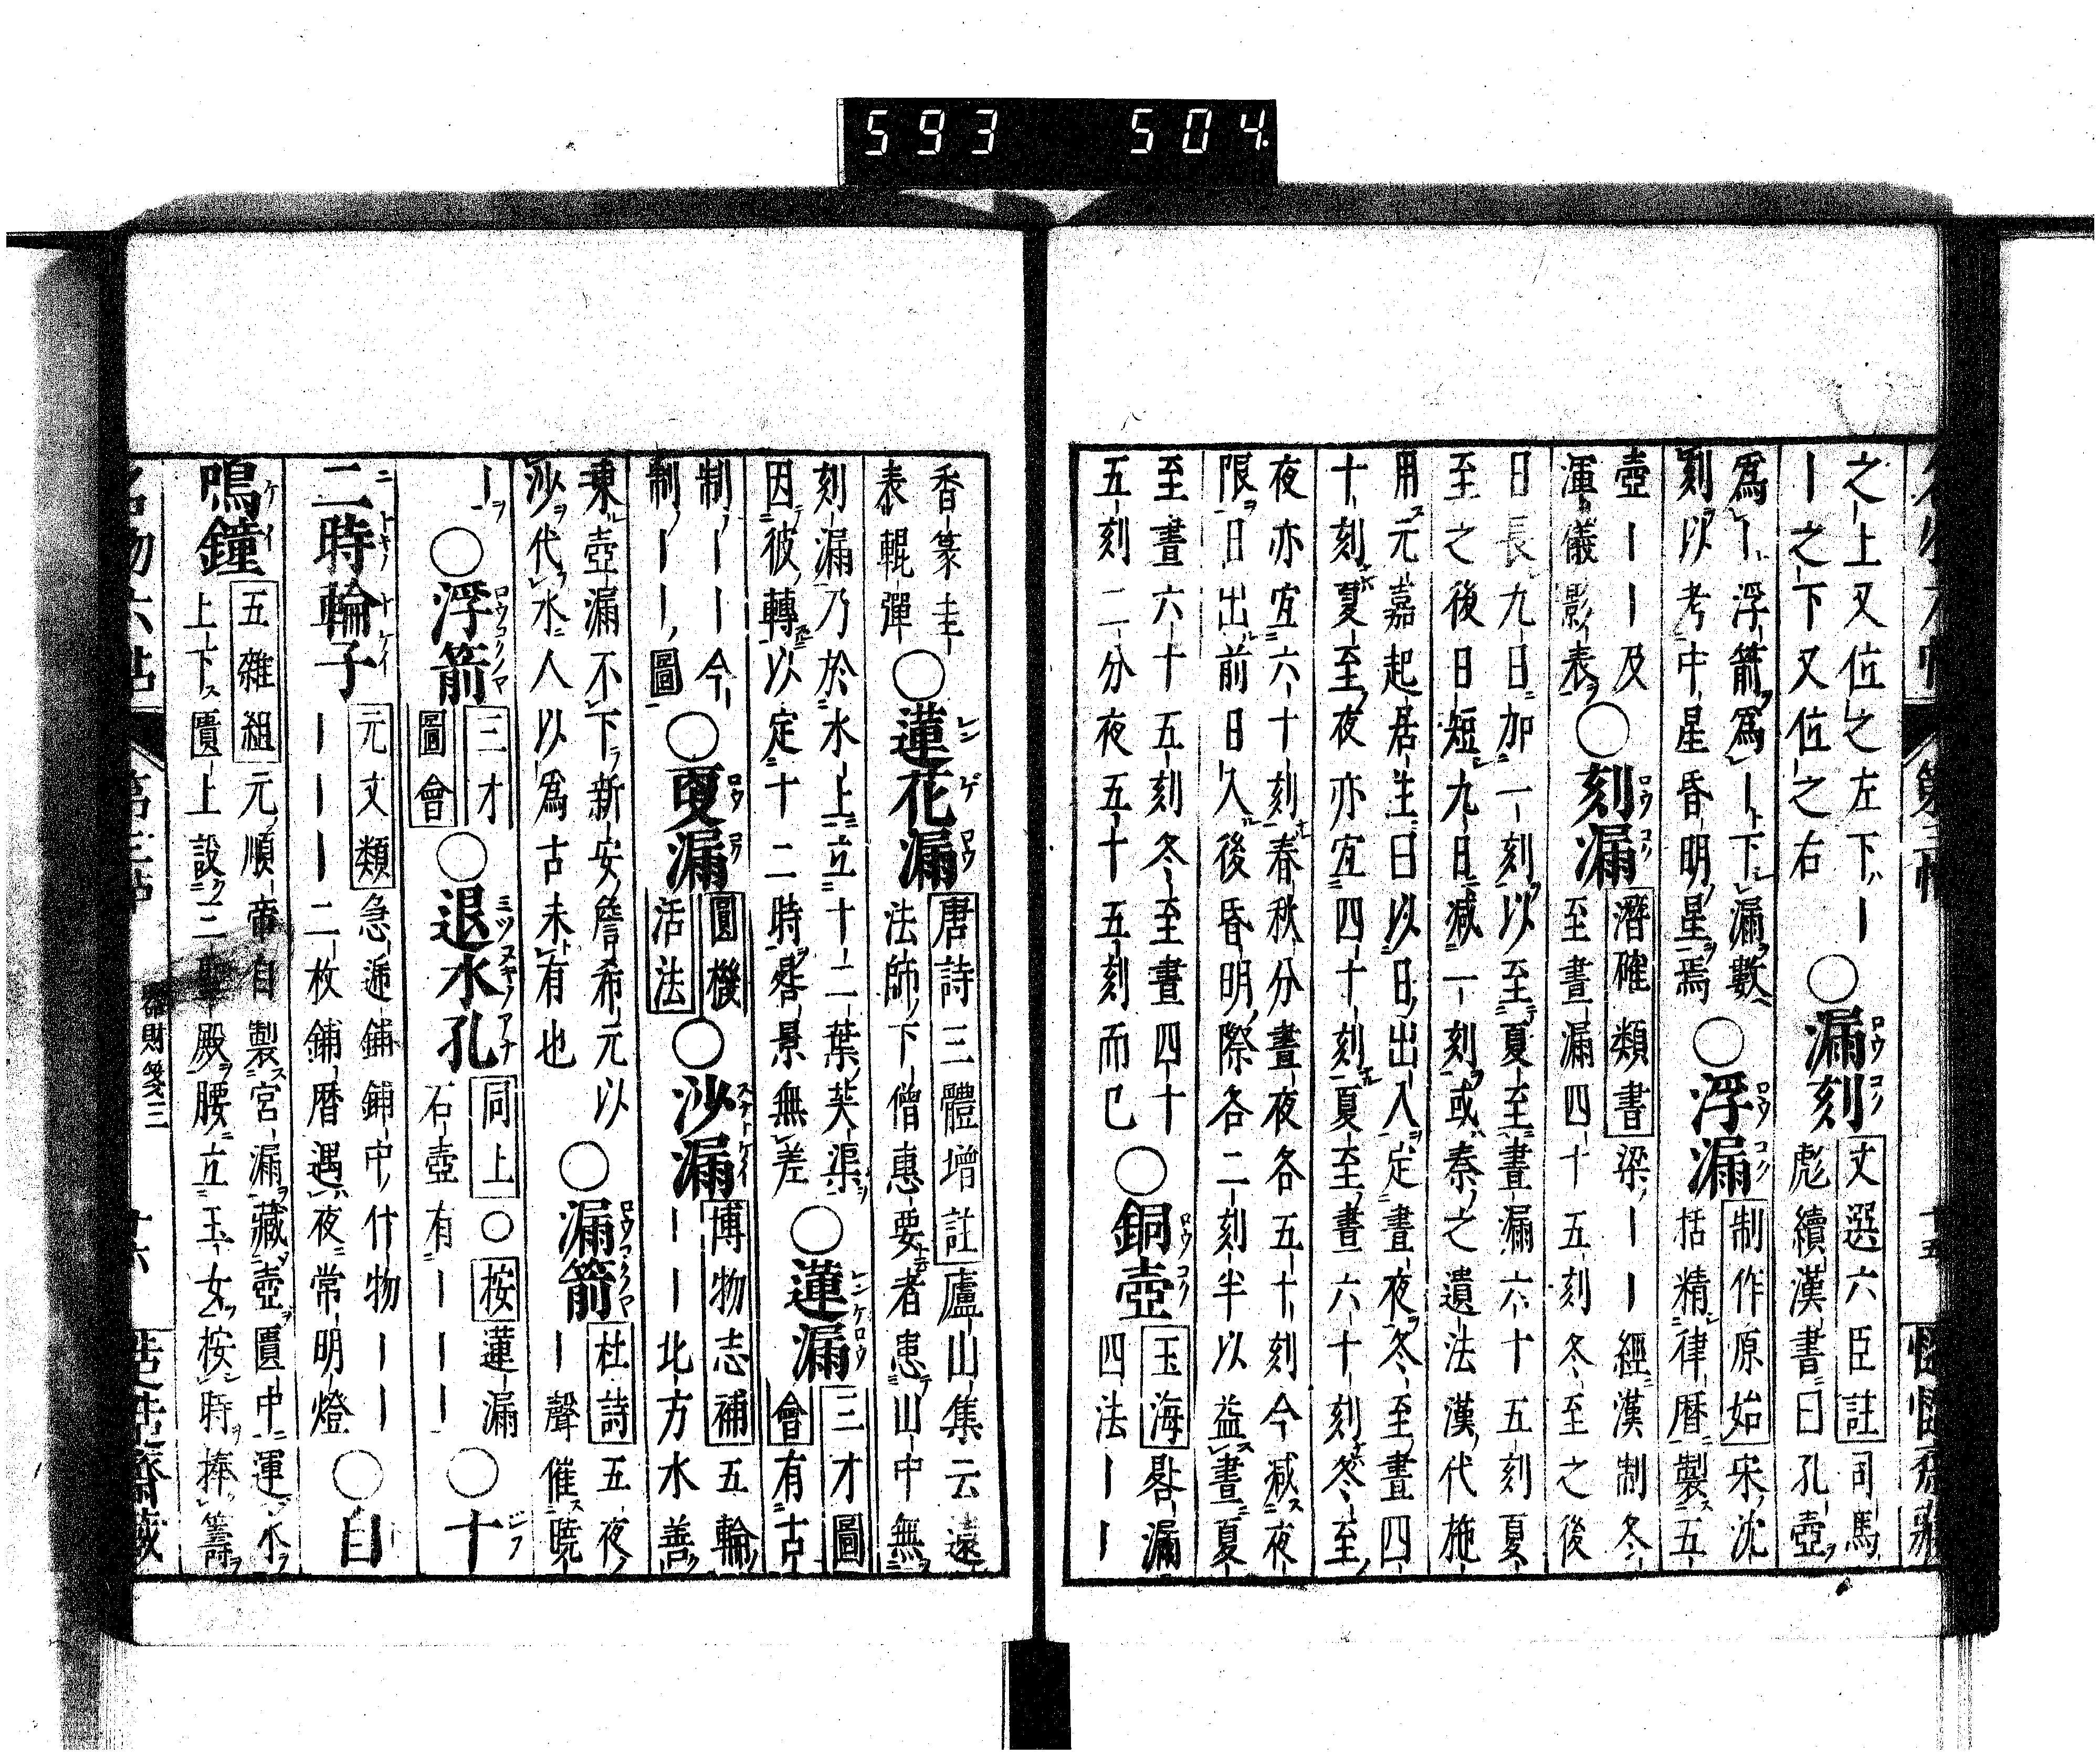 593 504
之上又位之左下ー
ー之下又位之右
○漏刻
文選六臣註司馬
彪續漢書曰孔壺
爲ー浮箭爲ー下漏數
刻以考中星昏明星焉
○浮漏
制作原始宋沈
括精律暦製五
壺ーーー及
渾儀影表
○刻漏
潛確類書梁ーー經漢制冬
至晝漏四十五刻冬至之後
日長九日加一刻以至夏至晝漏六十五刻夏
至之後日短九日減一刻或秦之遺法漢代施
用元嘉起居注曰以日出入定晝夜冬至晝四
十刻夏至夜亦宜四十刻夏至晝六十刻冬至
夜亦宜六十刻春秋分晝夜各五十刻今減夜
限日出前日入後昏明際各二刻半以益晝夏
至晝六十五刻冬至晝四十
五刻二分夜五十五刻而已
○銅壺
玉海畧漏
四法ーー
香篆圭
表輥彈
○蓮花漏
唐詩三體增註廬山集云遠
法師下僧惠要者患山中無
刻漏乃於水上立十二葉芙渠
因彼轉以定十二時晷景無差
○蓮漏
三才圖
會有古
制ーー今
制ーー圖
○夏漏
圓機
活法
○沙漏
博物志補五輪
ーー北方水善
凍壺漏不下新安詹希元以
沙代水人以爲古未有也
○漏箭
杜詩五夜
ー聲催曉
ー
○浮箭
三才
圖會
○退水孔
同上○按蓮漏
石壺有ーーー
○十
二時輪子
元文類急遞鋪鋪中什物ーー
ーーー二枚鋪暦遇夜常明燈
○自
鳴鐘
五雜組元順帝自製宮漏藏壺匱中運水
上下匱上設三聖殿腰立玉女按時捧籌
名物六帖
第三帖
器財箋三
十六